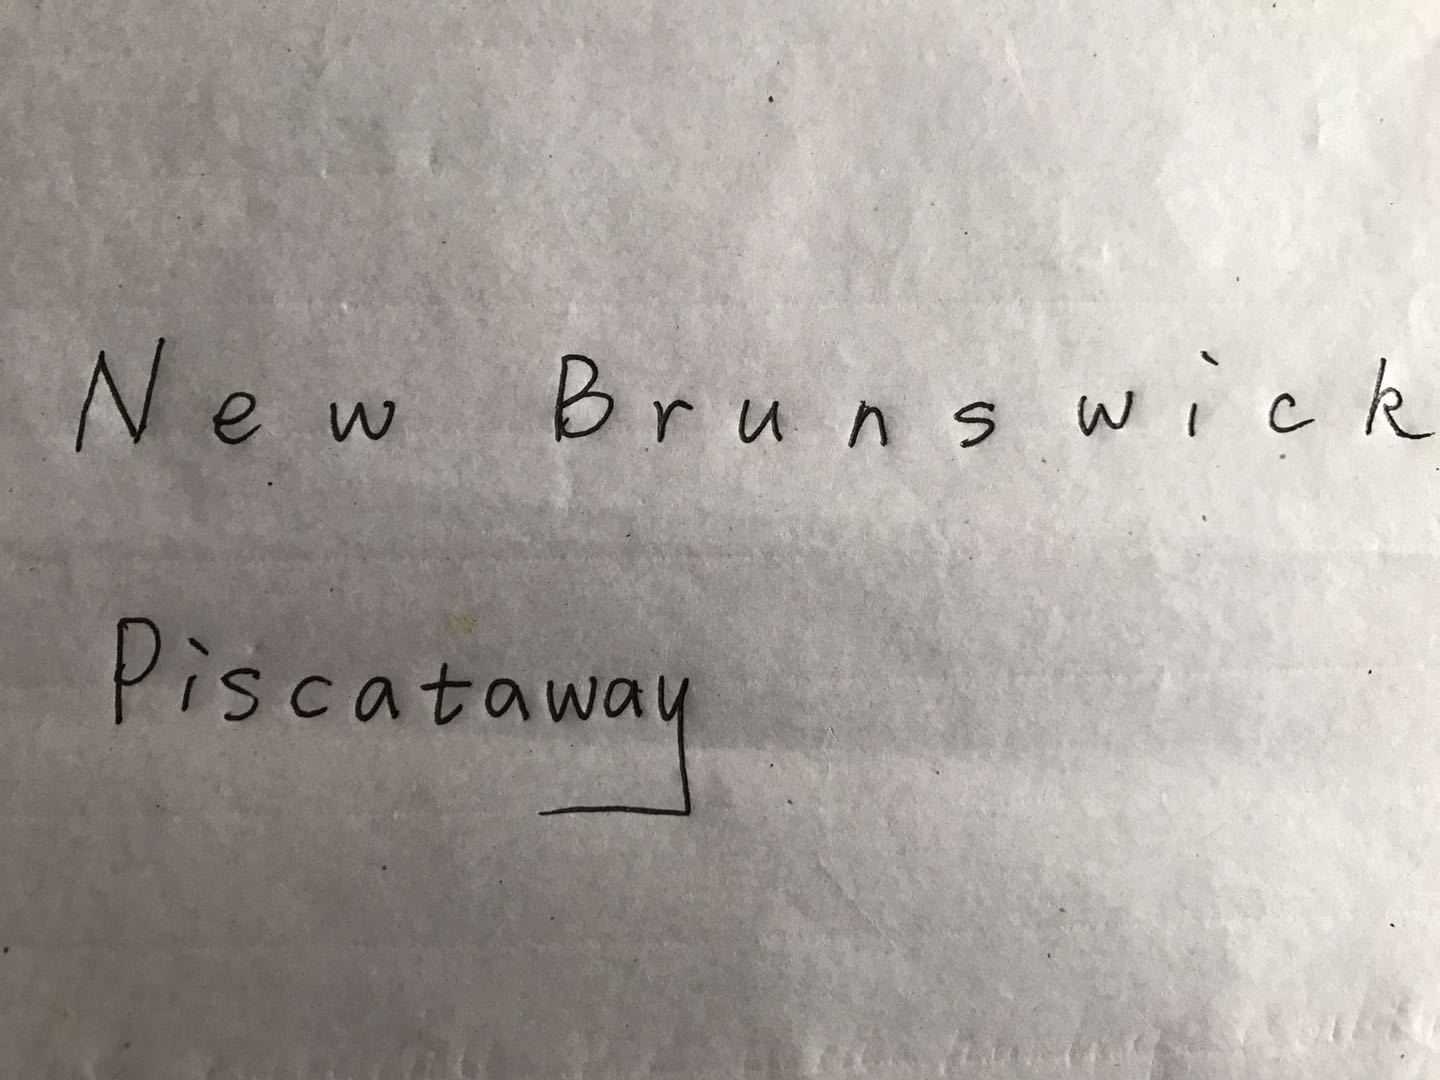 New Brunswick
Piscataway